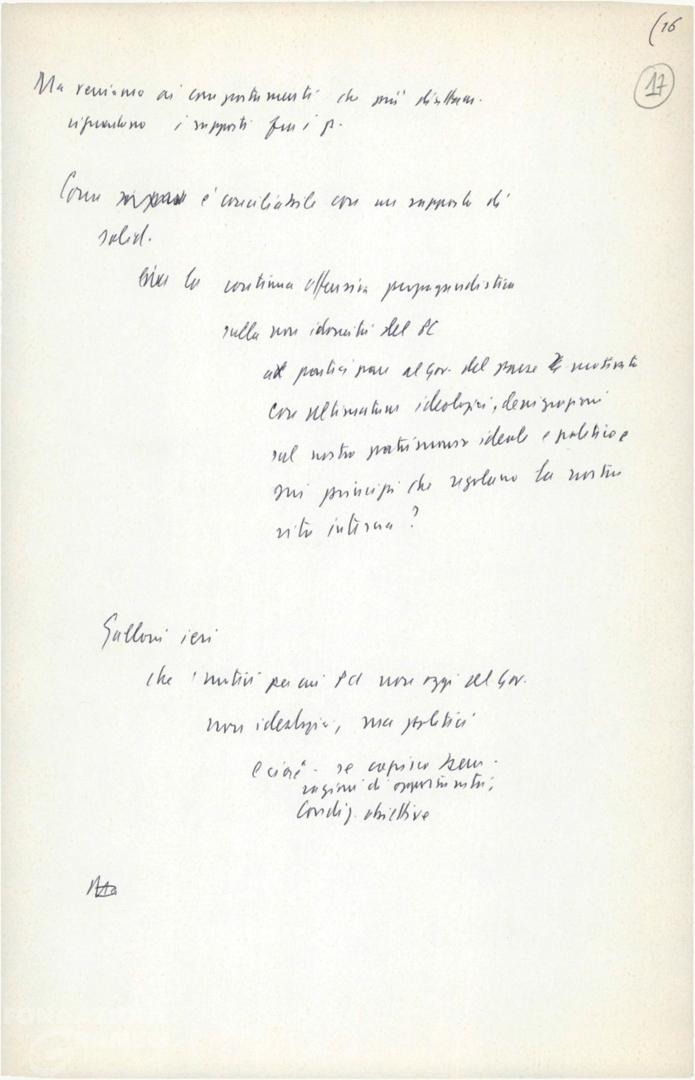 (16
17
Ma veniamo ai comportamenti che più direttam.
riguardano i rapporti fra i p.
Come è conciliabile con un rapporto di
solid.
la continua offensiva propagandistica
sulla non idoneità del PC
a partecipare al Gov. del paese motivata
con ultimatum ideologici, denigrazioni
sul nostro patrimonio ideale e politico e
sui principi che regolano la nostra
vita interna?
Galloni ieri
che i motivi per cui PCI non oggi al Gov.
non ideologici, ma politici
e cioè - se capisco bene -
ragioni di opportunità,
condiz. obiettive
Ma